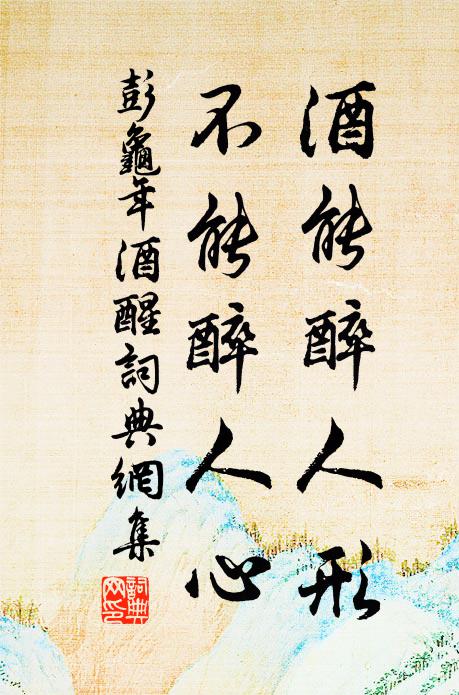 酒能醉人形
不能醉人心
彭龜年酒醒詞典網集
詞典